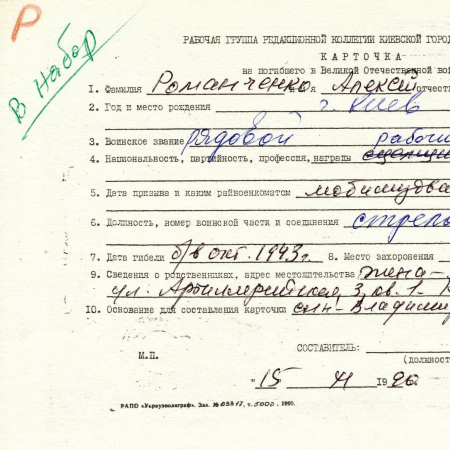 Р
В Набор
РАБОЧАЯ ГРУППА РЕДАКЦИОННОЙ КОЛЛЕГИИ КИЕВСКОЙ ГОРО
КАРТОЧКА
на погибшего в Великой Отечественной вой
1. Фамилия Романченко Алексей отчеств
2. Год и место рождения г. Киев
3. Воинское звание рядовой рабоч
4. Национальность, партийность, профессия, награды
5. Дата призыва и каким райвоенкоматом мобилизова
6. Должность, номер воинской части и соединения стрело
7. Дата гибели б/в окт. 1943 г 8. Место захоронения
9. Сведения о родственниках, адрес местожительства жена-
ул. Артиллерийская, 3, кв. 1-
10. Основание для составления карточки сын-Владимир
СОСТАВИТЕЛЬ:
М.П. (должност
"15 1990
РАПО «Укрвузполиграф». Зак. № 03317, т. 5000. 1990.